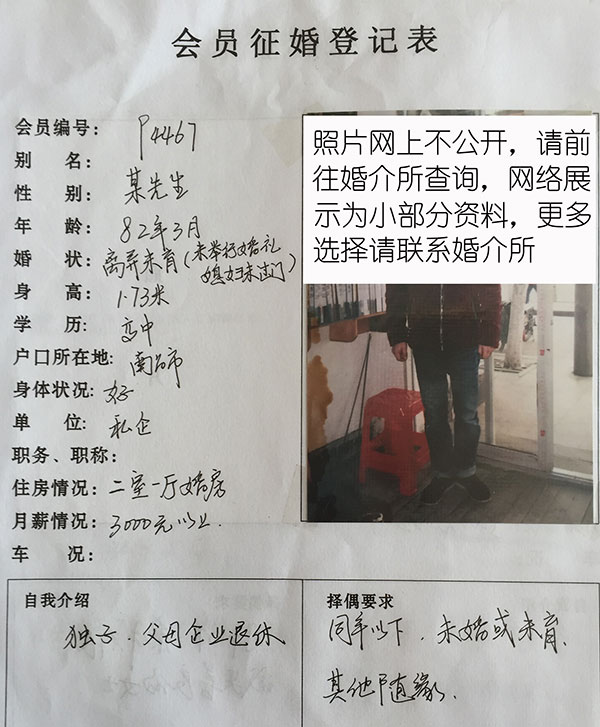 会员征婚登记表
会员编号： P4467
别 名：
某先生
性 别：
年 龄： 82年3月
婚 状： 离异未育（未举行婚礼
媳妇未过门）
身 高： 1.73米
学 历： 高中
户口所在地： 南昌市
身体状况： 好
单 位： 私企
职务、职称：
住房情况： 二室一厅婚房
月薪情况： 3000元以上.
车 况：
照片网上不公开，请前
往婚介所查询，网络展
示为小部分资料，更多
选择请联系婚介所
自我介绍
独子. 父母企业退休
择偶要求
同年以下. 未婚或未育.
其他随缘.